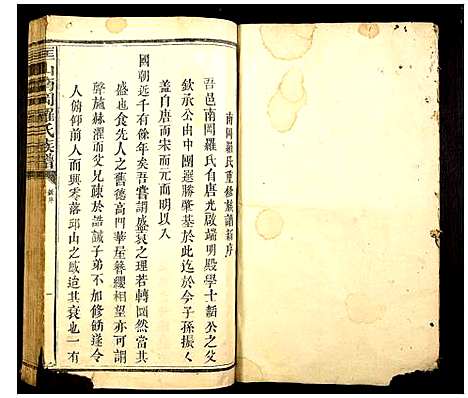 南岡羅氏重修族譜新序
吾邑南岡羅氏有唐光啟端明殿學士韜公之父
欽承公由中團選勝肇基於此迄於今子孫振々
蓋自唐而宋而元而明以入
國朝遠千有餘年矣吾嘗謂盛衰之理若轉圜然當其
盛也食先人之舊德高門華屋簪纓相望亦可謂
聲施赫濯而父兄疎於誥誡子弟不加修飭遂令
人俯仰前人而興零落邱山之感追其衰也一有
南岡羅氏族譜
新序
一